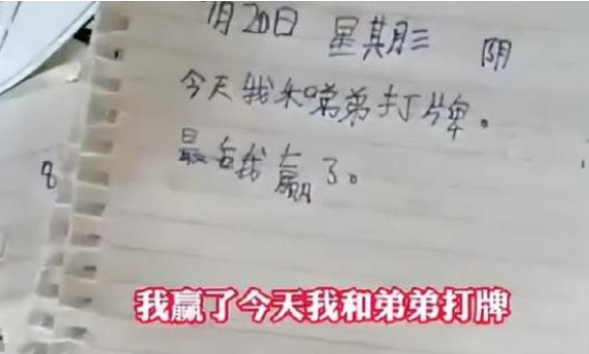 月20日 星期三 阴
今天我和弟弟打牌。
最后我赢了。
8
我赢了今天我和弟弟打牌